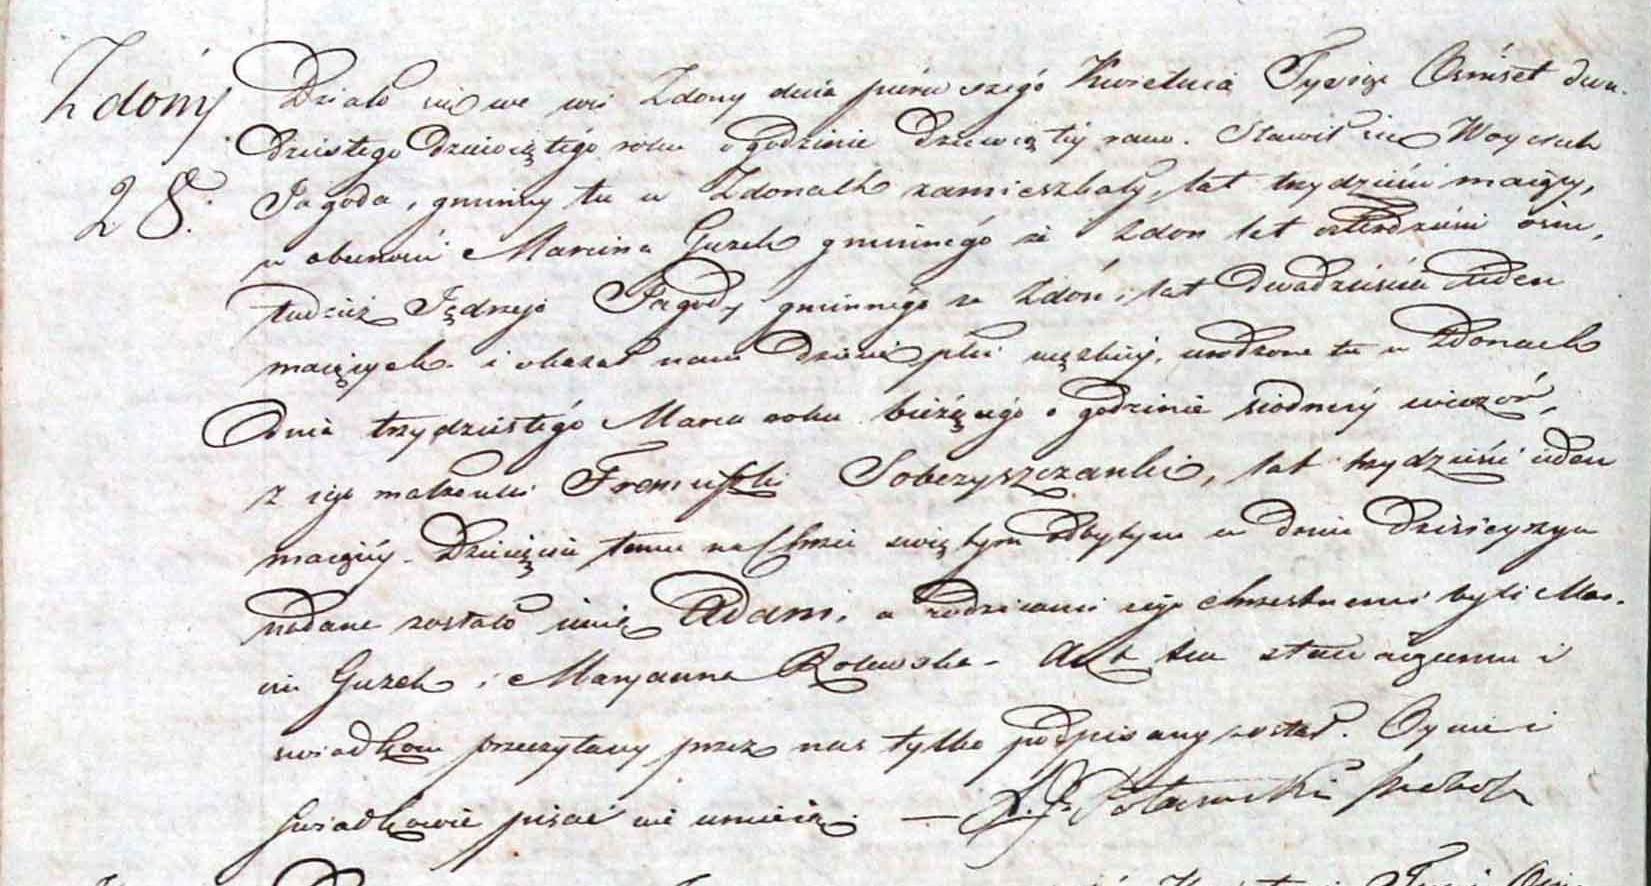 Zdony
28.
Działo się we wsi Zdony dnia pierwszego Kwietnia Tysiąc Ośmset dwu-
dziestego dziewiątego roku o godzinie dziewiątey rano. Stawił się Woyciech
Jagoda, gminny tu w Zdonach zamieszkały, lat trzydzieści maiący,
w obecności Marcina Guzek gminnego ze Zdon lat czterdzieści ośm,
tudzież Jędrzeja Jagody gminnego ze Zdon, lat dwadzieścia ieden
maiących. i okazał nam dziecię płci męzkiey, urodzone tu w Zdonach
dnia trzydziestego Marca roku bieżącego o godzinie siodmey wieczór,
z iego małżonki Franciszki Sobczyszczanki, lat trzydzieści ieden
maiącey. Dziecięciu temu na Chrzcie świętym odbytym w dniu dzisieyszym
nadane zostało imię Adam, a rodzicami iego chrzestnemi byli Mar-
cin Guzek i Maryanna Rolewska. Akt ten stawaiącemu i
swiadkom przeczytany przez nas tylko podpisany został. Oyciec i
swiadkowie pisać nie umieią. — Potarowski Proboszcz